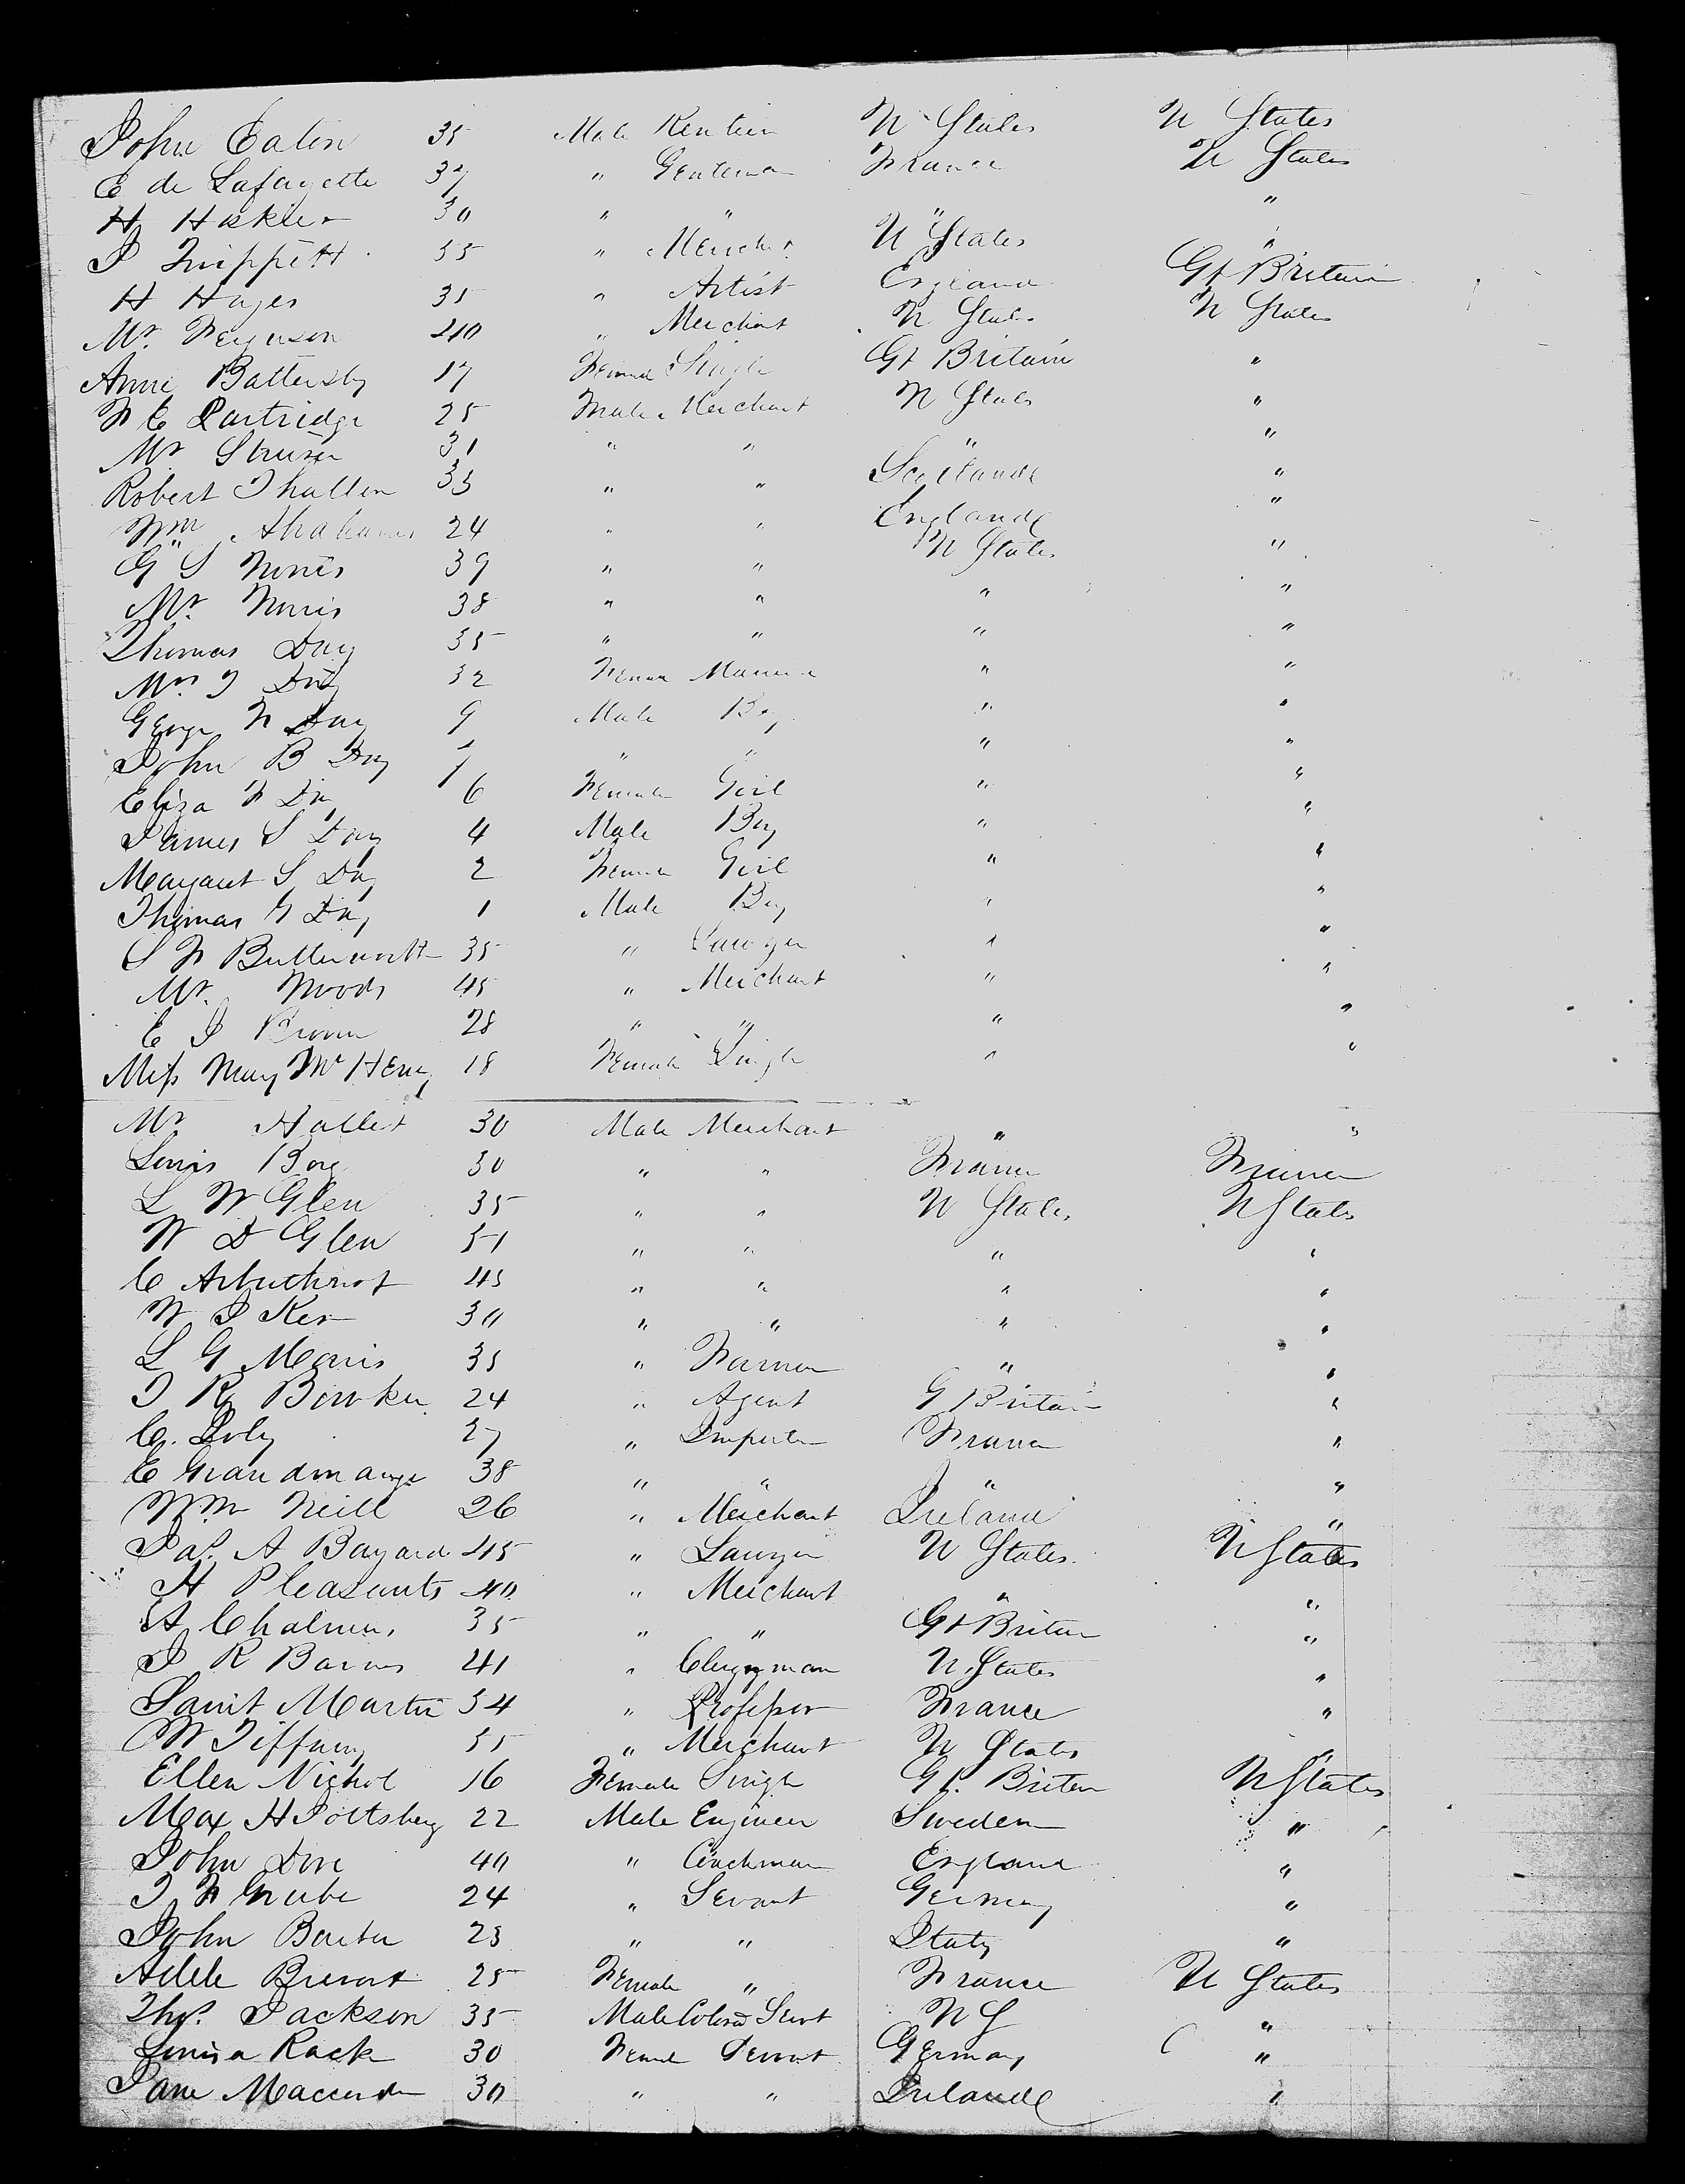 John Eaton 35 Male Rentier U States U States
E de Lafayette 37 " Gentleman France U States
H Haskler 30 " " " "
J Trippett 35 " Merchant U States "
H Hayes 35 " Artist England Gt Britain
Mr. Ferguson 40 " Merchant U States U States
Anne Battersby 17 Female Single Gt Britain "
F E Partridge 25 Male Merchant U States "
Mr 31 " " " "
Robert Thallon 33 " " Scotlande "
Wm Abrahams 24 " " Englande "
G S Norris 39 " " U States "
Mr. Norris 38 " " " "
Thomas Day 35 " " " "
Mrs T Day 32 Female Married " "
George F Day 9 Male Boy " "
John B Day 7 " " " "
Eliza F Day 6 Female Girl " "
James S Day 4 Male Boy " "
Margaret S Day 2 Female Girl " "
Thomas G Day 1 Male Boy " "
S F Butterworth 35 " Lawyer " "
Mr. Woods 45 " Merchant " "
E J Brown 28 " " " "
Miss Mary McHenry 18 Female Single " "
Mr Hallet 30 Male Merchant " "
Louis Borg 30 " " France France
L W Glen 35 " " U States U States
W D Glen 51 " " " "
C Arbuthnot 45 " " " "
W J Ker 30 " " " "
L G Morris 35 " Farmer " "
T R Bowker 24 " Agent G Britain "
C. Poly 27 " Importer France "
E Grandmange 38 " " " "
Wm Neill 26 " Merchant Ireland "
Jas. A Bayard 45 " Lawyer U States U States
H Pleasants 40 " Merchant " "
A Chalmers 35 " " Gt Britain "
J R Barnes 41 " Clergyman U States "
Saint Martin 34 " Professor France "
W Tiffany 55 " Merchant U States "
Ellen Nichol 16 Female Single Gt. Britain U States
Max H 22 Male Engineer Sweden "
John Dore 40 " Coachman England "
J F Grube 24 " Servant Germany "
John Baxter 23 " " Italy "
Adele Brevort 25 Female " France U States
Thos. Jackson 35 Male Colored Servt U S "
Louisa Rack 30 Female Servant Germany "
Jane 30 " " Irelande "